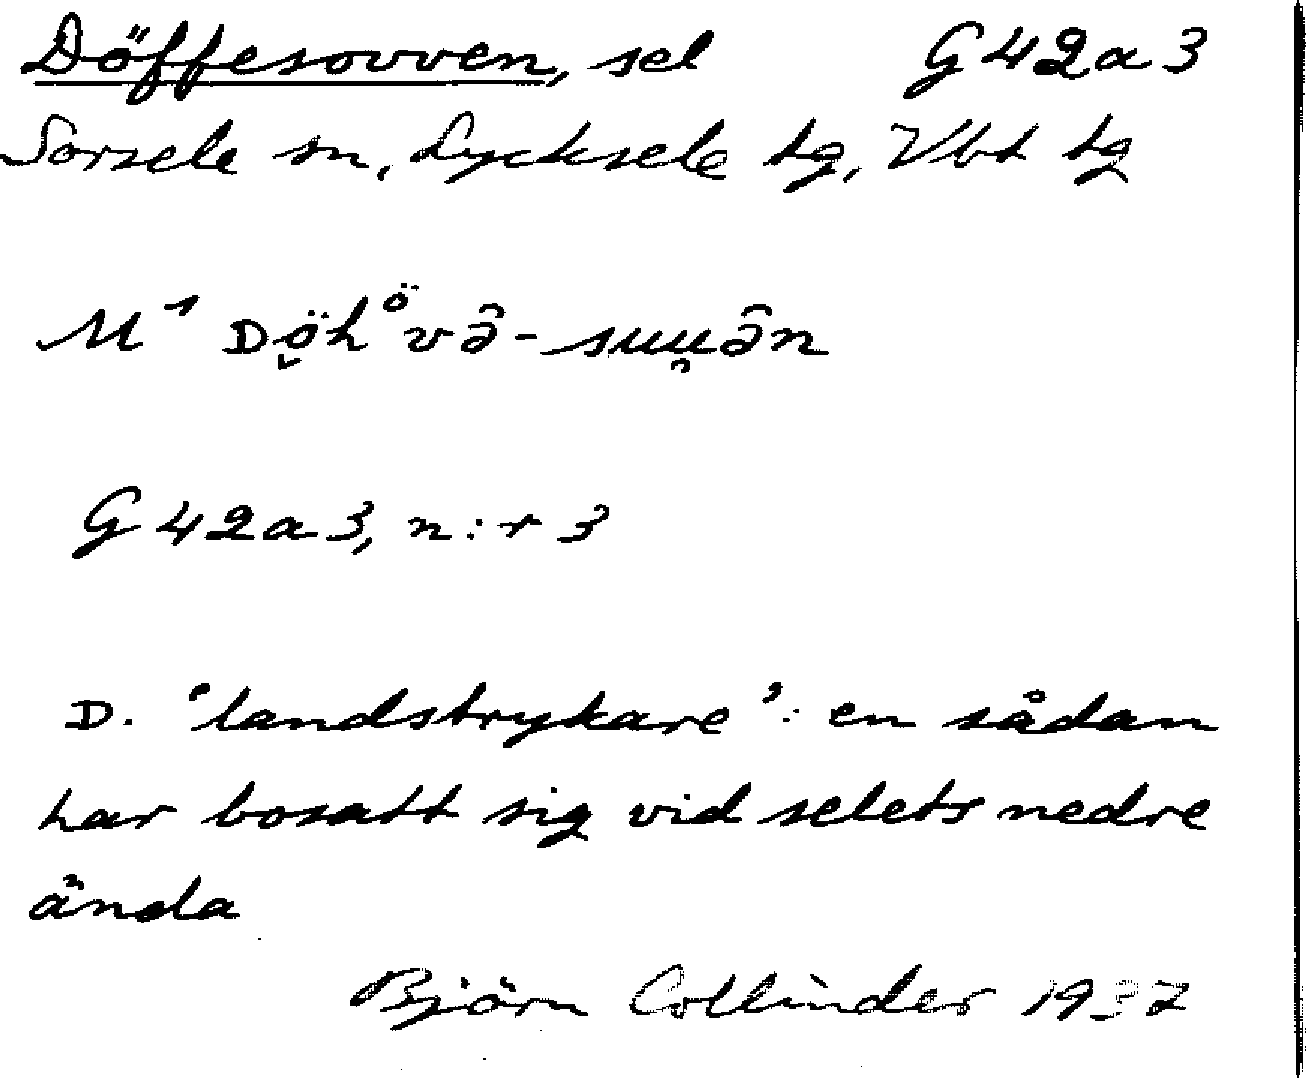 Döffesovven, sel G42a3
Sorsele sn, Lycksele tg, Vbt tg
M¹
G42a3, n:r 3
D. 'landstrykare': en sådan
har bosatt sig vid selets nedre
ända
Björn Collinder 1937